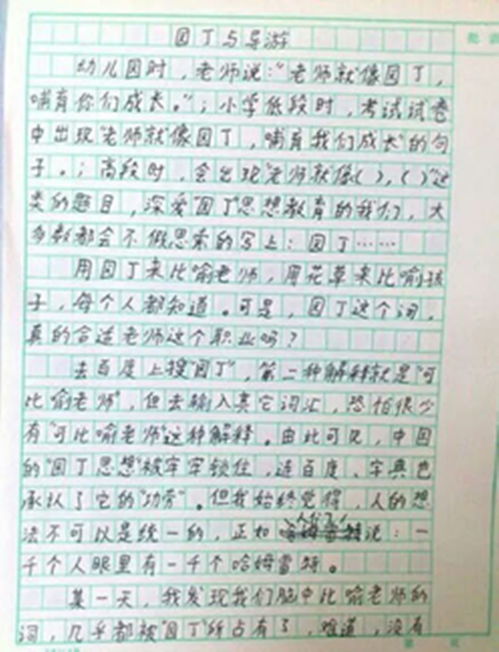 园丁与导游
幼儿园时，老师说：“老师就像园丁，
哺育你们成长。”；小学低段时，考试试卷
中出现“老师就像园丁，哺育我们成长”的句
子。；高段时，会出现“老师就像（），（）”这
类的题目，深爱“园丁”思想教育的我们，大
多数都会不假思索的写上：园丁……
用园丁来比喻老师，用花草来比喻孩
子，每个人都知道。可是，园丁这个词，
真的合适老师这个职业吗？
去百度上搜“园丁”，第二种解释就是“可
比喻老师”，但去输入其它词汇，恐怕很少
有“可比喻老师”这种解释。由此可见，中国
的“园丁思想”被牢牢锁住，连百度、字典也
承认了它的“功劳”。但我始终觉得，人的想
法不可以是统一的，正如说：一
千个人眼里有一千个哈姆雷特。
某一天，我发现我们脑中比喻老师的
词，几乎都被“园丁”所占有了，难道，没有